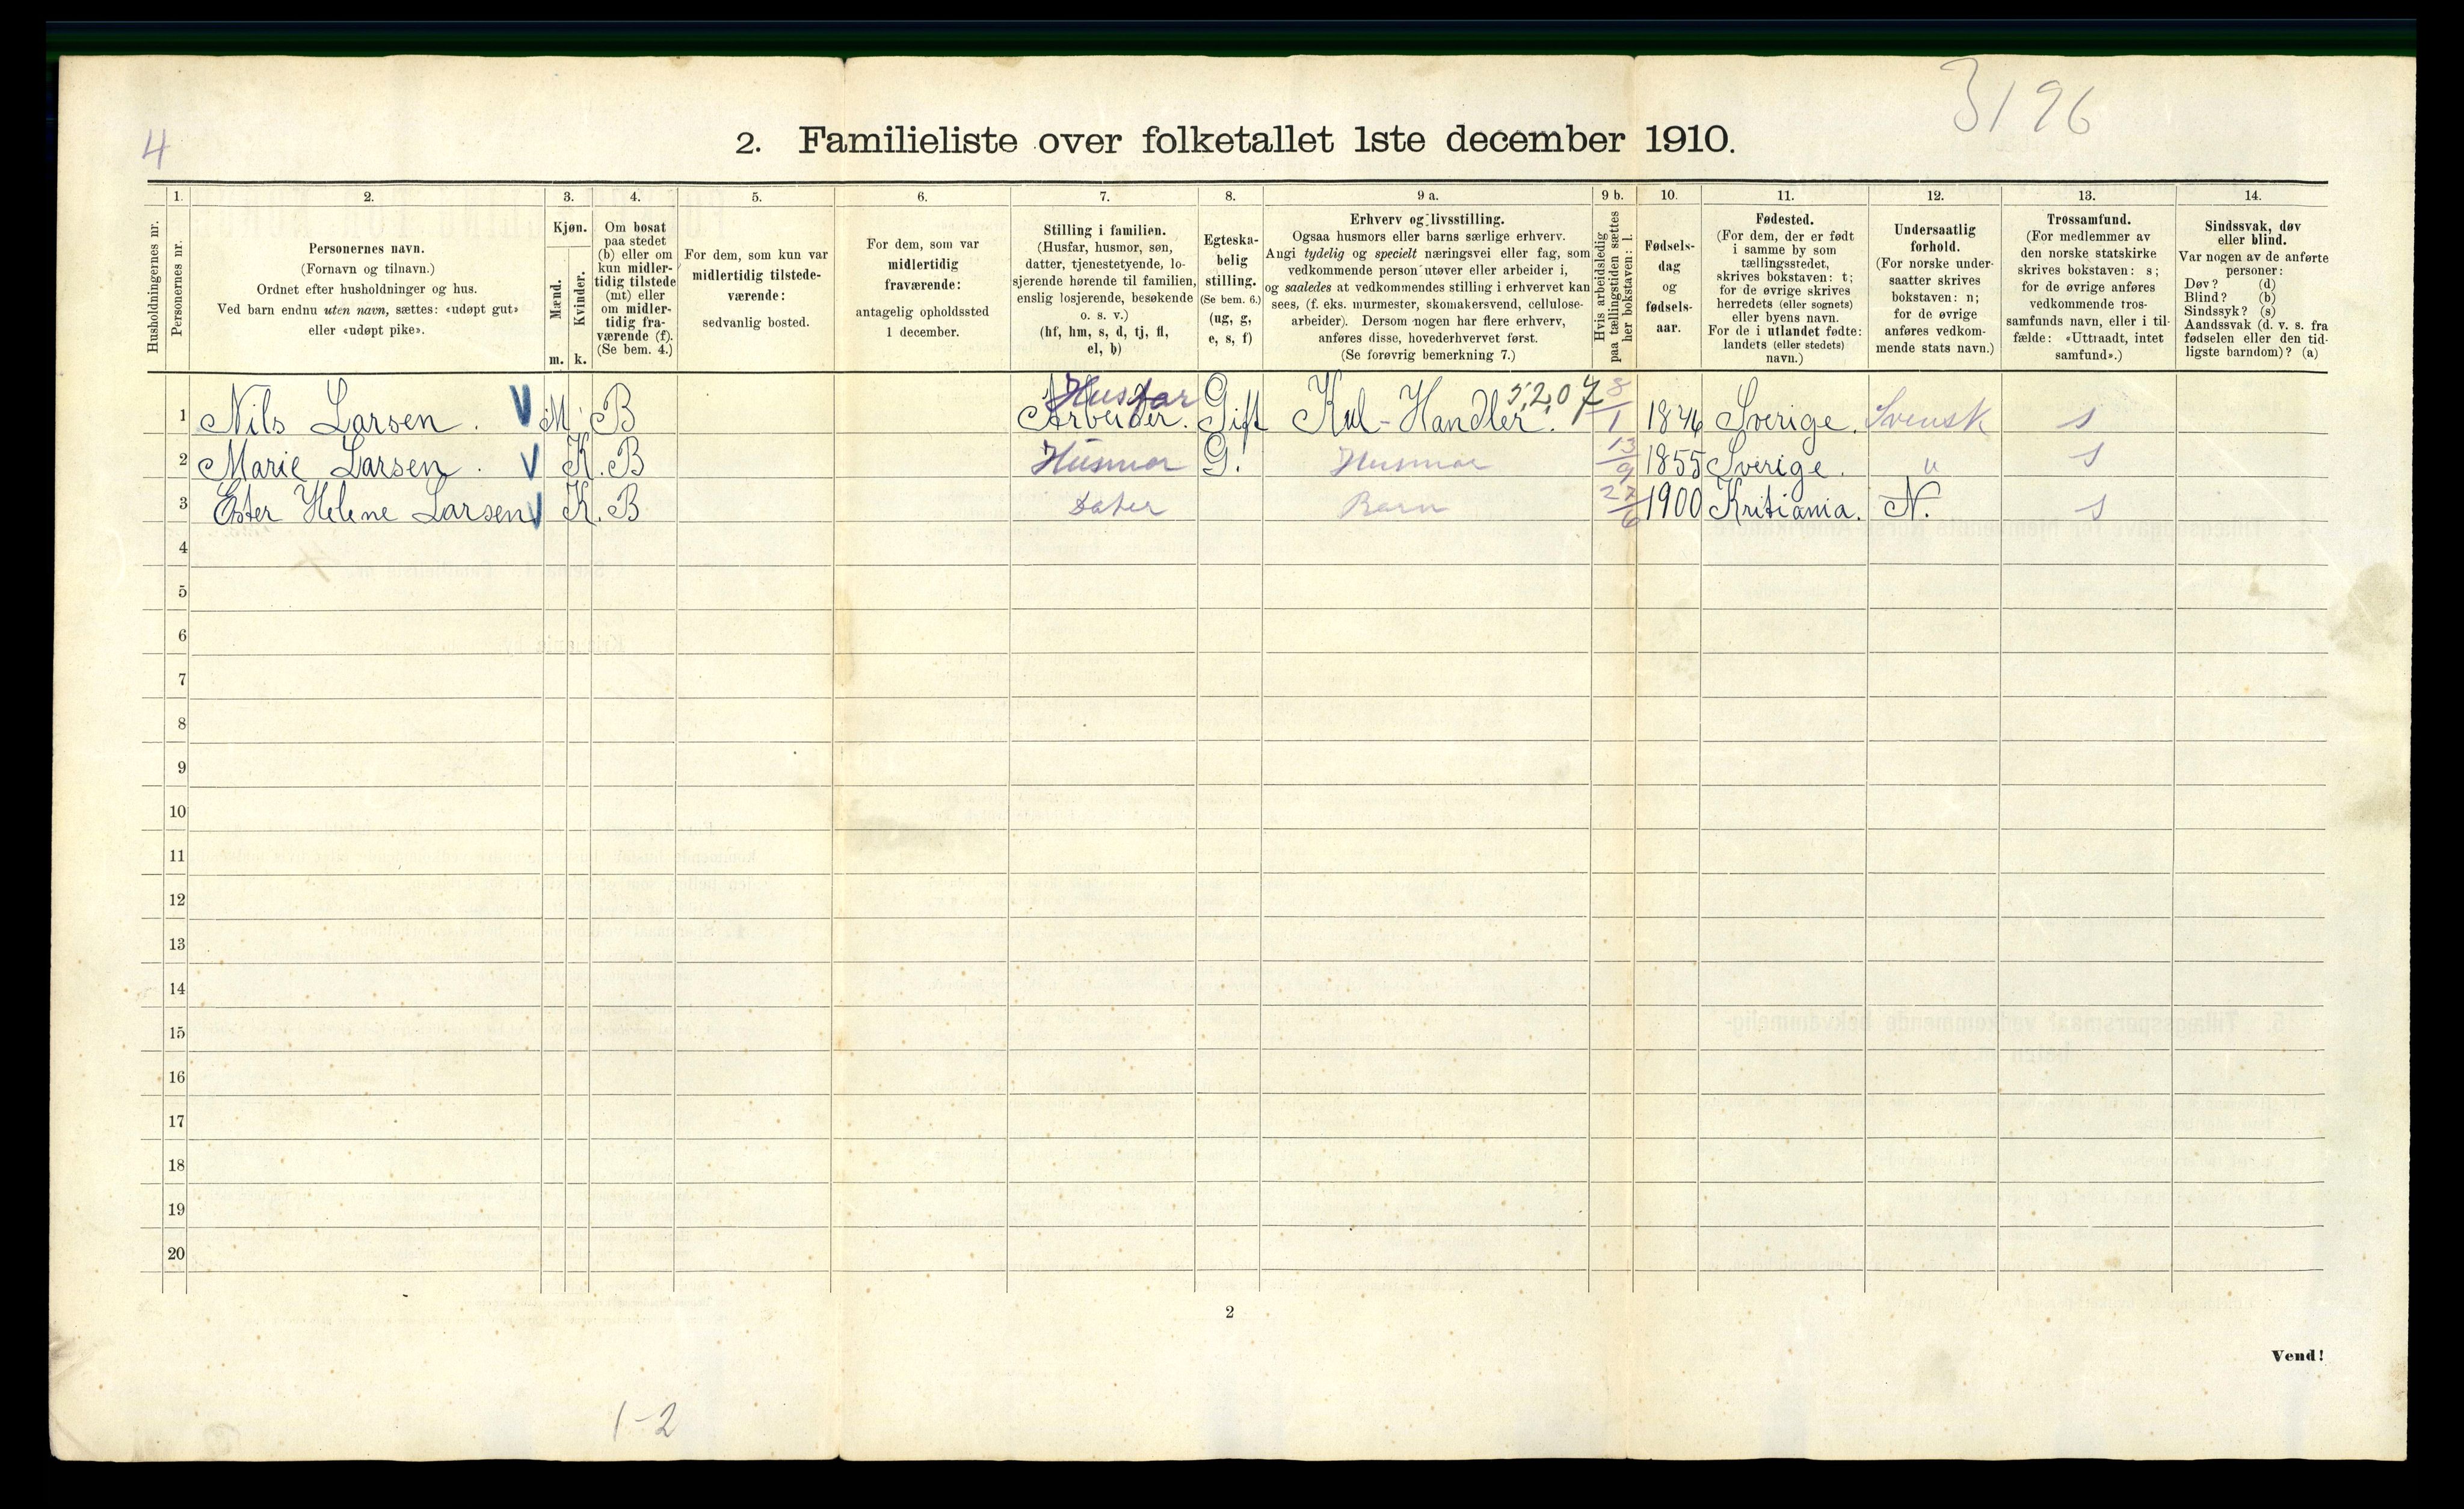 3196
4
2. Familieliste over folketallet 1ste december 1910.
Husholdningernes nr.
1.
Personernes nr.
2.
Personernes navn.
(Fornavn og tilnavn.)
Ordnet efter husholdninger og hus.
Ved barn endnu uten navn, sættes: «udøpt gut»
eller «udøpt pike».
3.
Kjøn.
Mænd.
m.
Kvinder.
k.
4.
Om bosat
paa stedet
(b) eller om
kun midler-
tidig tilstede
(mt) eller
om midler-
tidig fra-
værende (f).
(Se bem. 4.)
5.
For dem, som kun var
midlertidig tilstede-
værende:
sedvanlig bosted.
6.
For dem, som var
midlertidig
fraværende:
antagelig opholdssted
1 december.
7.
Stilling i familien.
(Husfar, husmor, søn,
datter, tjenestetyende, lo-
sjerende hørende til familien,
enslig losjerende, besøkende
o. s. v.)
(hf, hm, s, d, tj, fl,
el, b)
8.
Egteska-
belig
stilling.
(Se bem. 6.)
(ug, g,
e, s, f)
9 a.
Erhverv og livsstilling.
Ogsaa husmors eller barns særlige erhverv.
Angi tydelig og specielt næringsvei eller fag, som
vedkommende person utøver eller arbeider i,
og saaledes at vedkommendes stilling i erhvervet kan
sees, (f. eks. murmester, skomakersvend, cellulose-
arbeider). Dersom nogen har flere erhverv,
anføres disse, hovederhvervet først.
(Se forøvrig bemerkning 7.)
9 b.
Hvis arbeidsledig
paa tællingstiden sættes
her bokstaven: l.
10.
Fødsels-
dag
og
fødsels-
aar.
11.
Fødested.
(For dem, der er født
i samme by som
tællingsstedet,
skrives bokstaven: t;
for de øvrige skrives
herredets (eller sognets)
eller byens navn.
For de i utlandet fødte:
landets (eller stedets)
navn.)
12.
Undersaatlig
forhold.
(For norske under-
saatter skrives
bokstaven: n;
for de øvrige
anføres vedkom-
mende stats navn.)
13.
Trossamfund.
(For medlemmer av
den norske statskirke
skrives bokstaven: s;
for de øvrige anføres
vedkommende tros-
samfunds navn, eller i til-
fælde: «Uttraadt, intet
samfund».)
14.
Sindssvak, døv
eller blind.
Var nogen av de anførte
personer:
Døv? (d)
Blind? (b)
Sindssyk? (s)
Aandssvak (d. v. s. fra
fødselen eller den tid-
ligste barndom)? (a)
1 Nils Larsen. V M B Husfar Arbeider. G Gift Kul-Handler. 5,2,07 8/1 1846 Sverige. Svensk s
2 Marie Larsen. V K. B Husmor G. Husmor 13/9 1855 Sverige. u s
3 Ester Helene Larsen V K. B Dater Barn 27/6 1900 Kritiania. N. s
4
5
6
7
8
9
10
11
12
13
14
15
16
17
18
19
20
2
Vend!
1-2